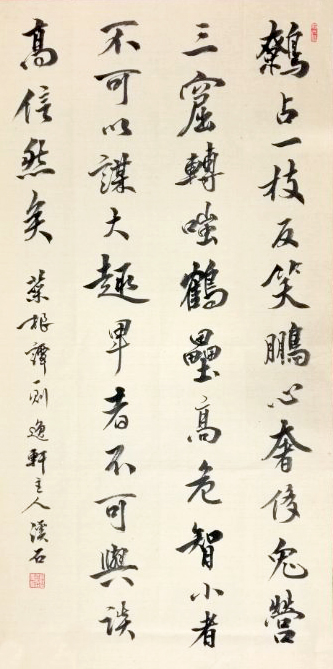 鷦占一枝反笑鵬心奢侈兔營
三窟轉嗤鶴壘高危智小者
不可以謀大趣卑者不可與談
高信然矣 菜根譚一則 逸軒主人 漢石